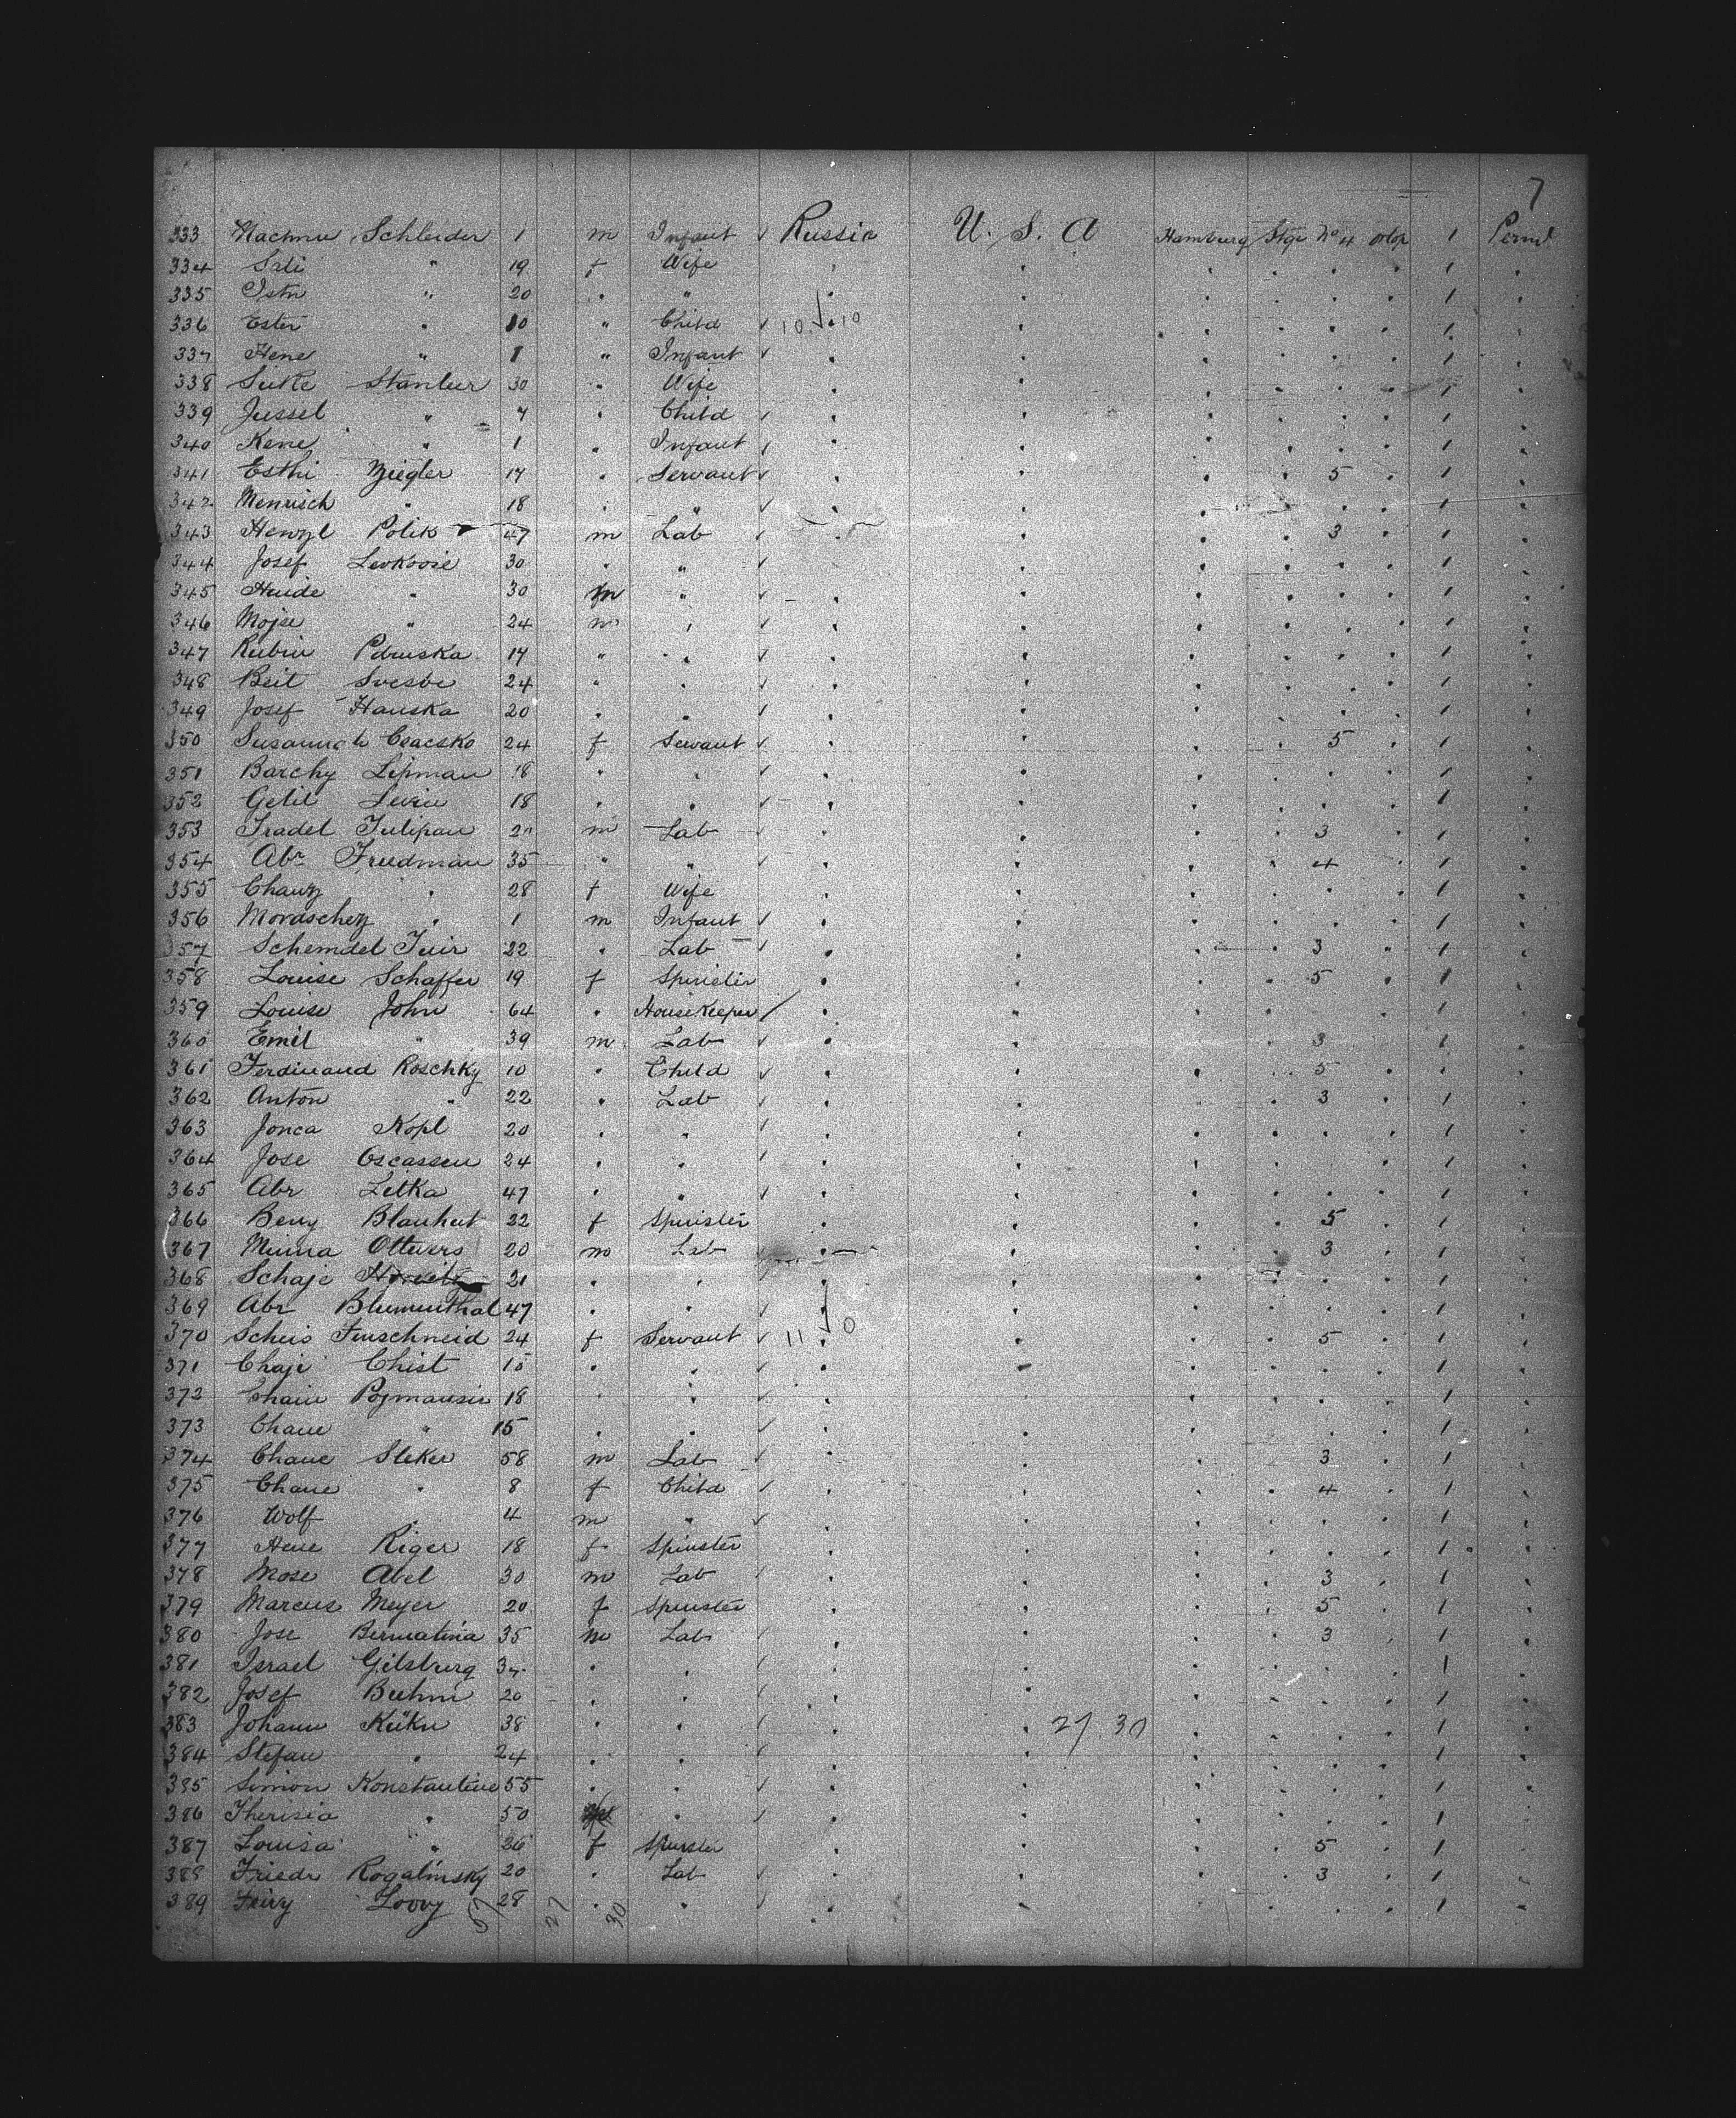 7
333 Nachmu Schleider 1 m Infant ✓ Russia U. S. A Hamburg Stge No 4 orlop 1 Perm't
334 Sali " 19 f Wife . . . . . . 1 .
335 " 20 . " . . . . . . 1 .
336 Ester " 10 " Child ✓ 10 10 . . . . . 1 .
337 Hene " 1 " Infant ✓ . . . . . . 1 .
338 Sutke Stanleer 30 " Wife . . . . . . 1 .
339 Jussel " 7 . Child . . . . . . 1 .
340 Kene " 1 " Infant . . . . . . 1 .
341 Esthi Ziegler 17 . Servant ✓ . . . . 5 . 1 .
342 Menusch " 18 . " ✓ . . . . . . 1 .
343 Henzl Polik 47 m Lab ✓ . . . . 3 . 1 .
344 Josef Levkovie 30 . " ✓ . . . . . . 1 .
345 Huide " 30 m " ✓ . . . . . . 1 .
346 Mojse " 24 m " ✓ . . . . . . 1 .
347 Rubin Pdruska 17 " . ✓ . . . . . . 1 .
348 Beit Svesbe 24 " . ✓ . . . . . . 1 .
349 Josef Hauska 20 . . ✓ . . . . . . 1 .
350 Susannah Csacsko 24 f Servant ✓ . . . . 5 . 1 .
351 Barchy Lipman 18 . " ✓ . . . . . . 1 .
352 Getil Levin 18 . . ✓ . . . . . . 1 .
353 Iradel Tulipan m Lab . . . . 3 . 1 .
354 Abr Friedman 35 " " ✓ . . . . 4 . 1 .
355 Chany . 28 f Wife . . . . . . 1 .
356 Mordschey . 1 m Infant ✓ . . . . . . 1 .
357 Schemdel Tuir 22 . Lab ✓ . . . . 3 " 1 .
358 Louise Schaffer 19 f Spinster . . . . 5 . 1 .
359 Louise John 64 . Housekeeper / . . . . . . 1 .
360 Emil " 39 m Lab ✓ . . . . 3 . 1 .
361 Ferdinand Roschky 10 . Child ✓ . . . . 5 . 1 .
362 Anton " 22 . Lab ✓ . . . . 3 . 1 .
363 Jonca Kopl 20 . . . . . . . . 1 .
364 Jose Oscassen 24 . . . . . . . . 1 .
365 Abr Litka 47 . . ✓ . . . . . . 1 .
366 Beny Blauhut 22 f Spinster . . . . 5 . 1 .
367 Minna Ottwers 20 m Lab . . . . 3 . 1 .
368 Schaje 21 . . . . . . . . 1 .
369 Abr Blumenthal 47 . . ✓ . . . . . . 1 .
370 Scheis Finschneid 24 f Servant ✓ 11 0 . . . 5 . 1 .
371 Chaje Chist 15 . . ✓ . . . . . . 1 .
372 Chaie Pojmansie 18 . . ✓ . . . . . . 1 .
373 Chane " 15 . . ✓ . . . . . . 1 .
374 Chane Sleker 58 m Lab ✓ . . . . 3 . 1 .
375 Chane . 8 f Child ✓ . . . . 4 . 1 .
376 Wolf . 4 m " ✓ . . . . . . 1 .
377 Hene Riger 18 f Spinster . . . . . . 1 .
378 Mose Abel 30 m Lab . . . . 3 . 1 .
379 Marcus Meyer 20 f Spinster . . . . 5 . 1 .
380 Jose Bernatina 35 m Lab . . . . 3 . 1 .
381 Israel Gilsburg . . . . . . . . 1 .
382 Josef Buhm 20 . . . . . . . . 1 .
383 Johann Kükn 38 . . . . 27 30 . . . . 1 .
384 Stefan . 24 . . . . . . . . 1 .
385 Simon Konstantine 55 . . . . . . . . 1 .
386 Therisia " 50 . . . . . . . 1 .
387 Louisa " 26 f Spinster . . . . 5 . 1 .
388 Friedr Rogalinsky 20 . Lab . . . . 3 . 1 .
389 Loovy 28 . . . . . . . . 1 .
57 27 30